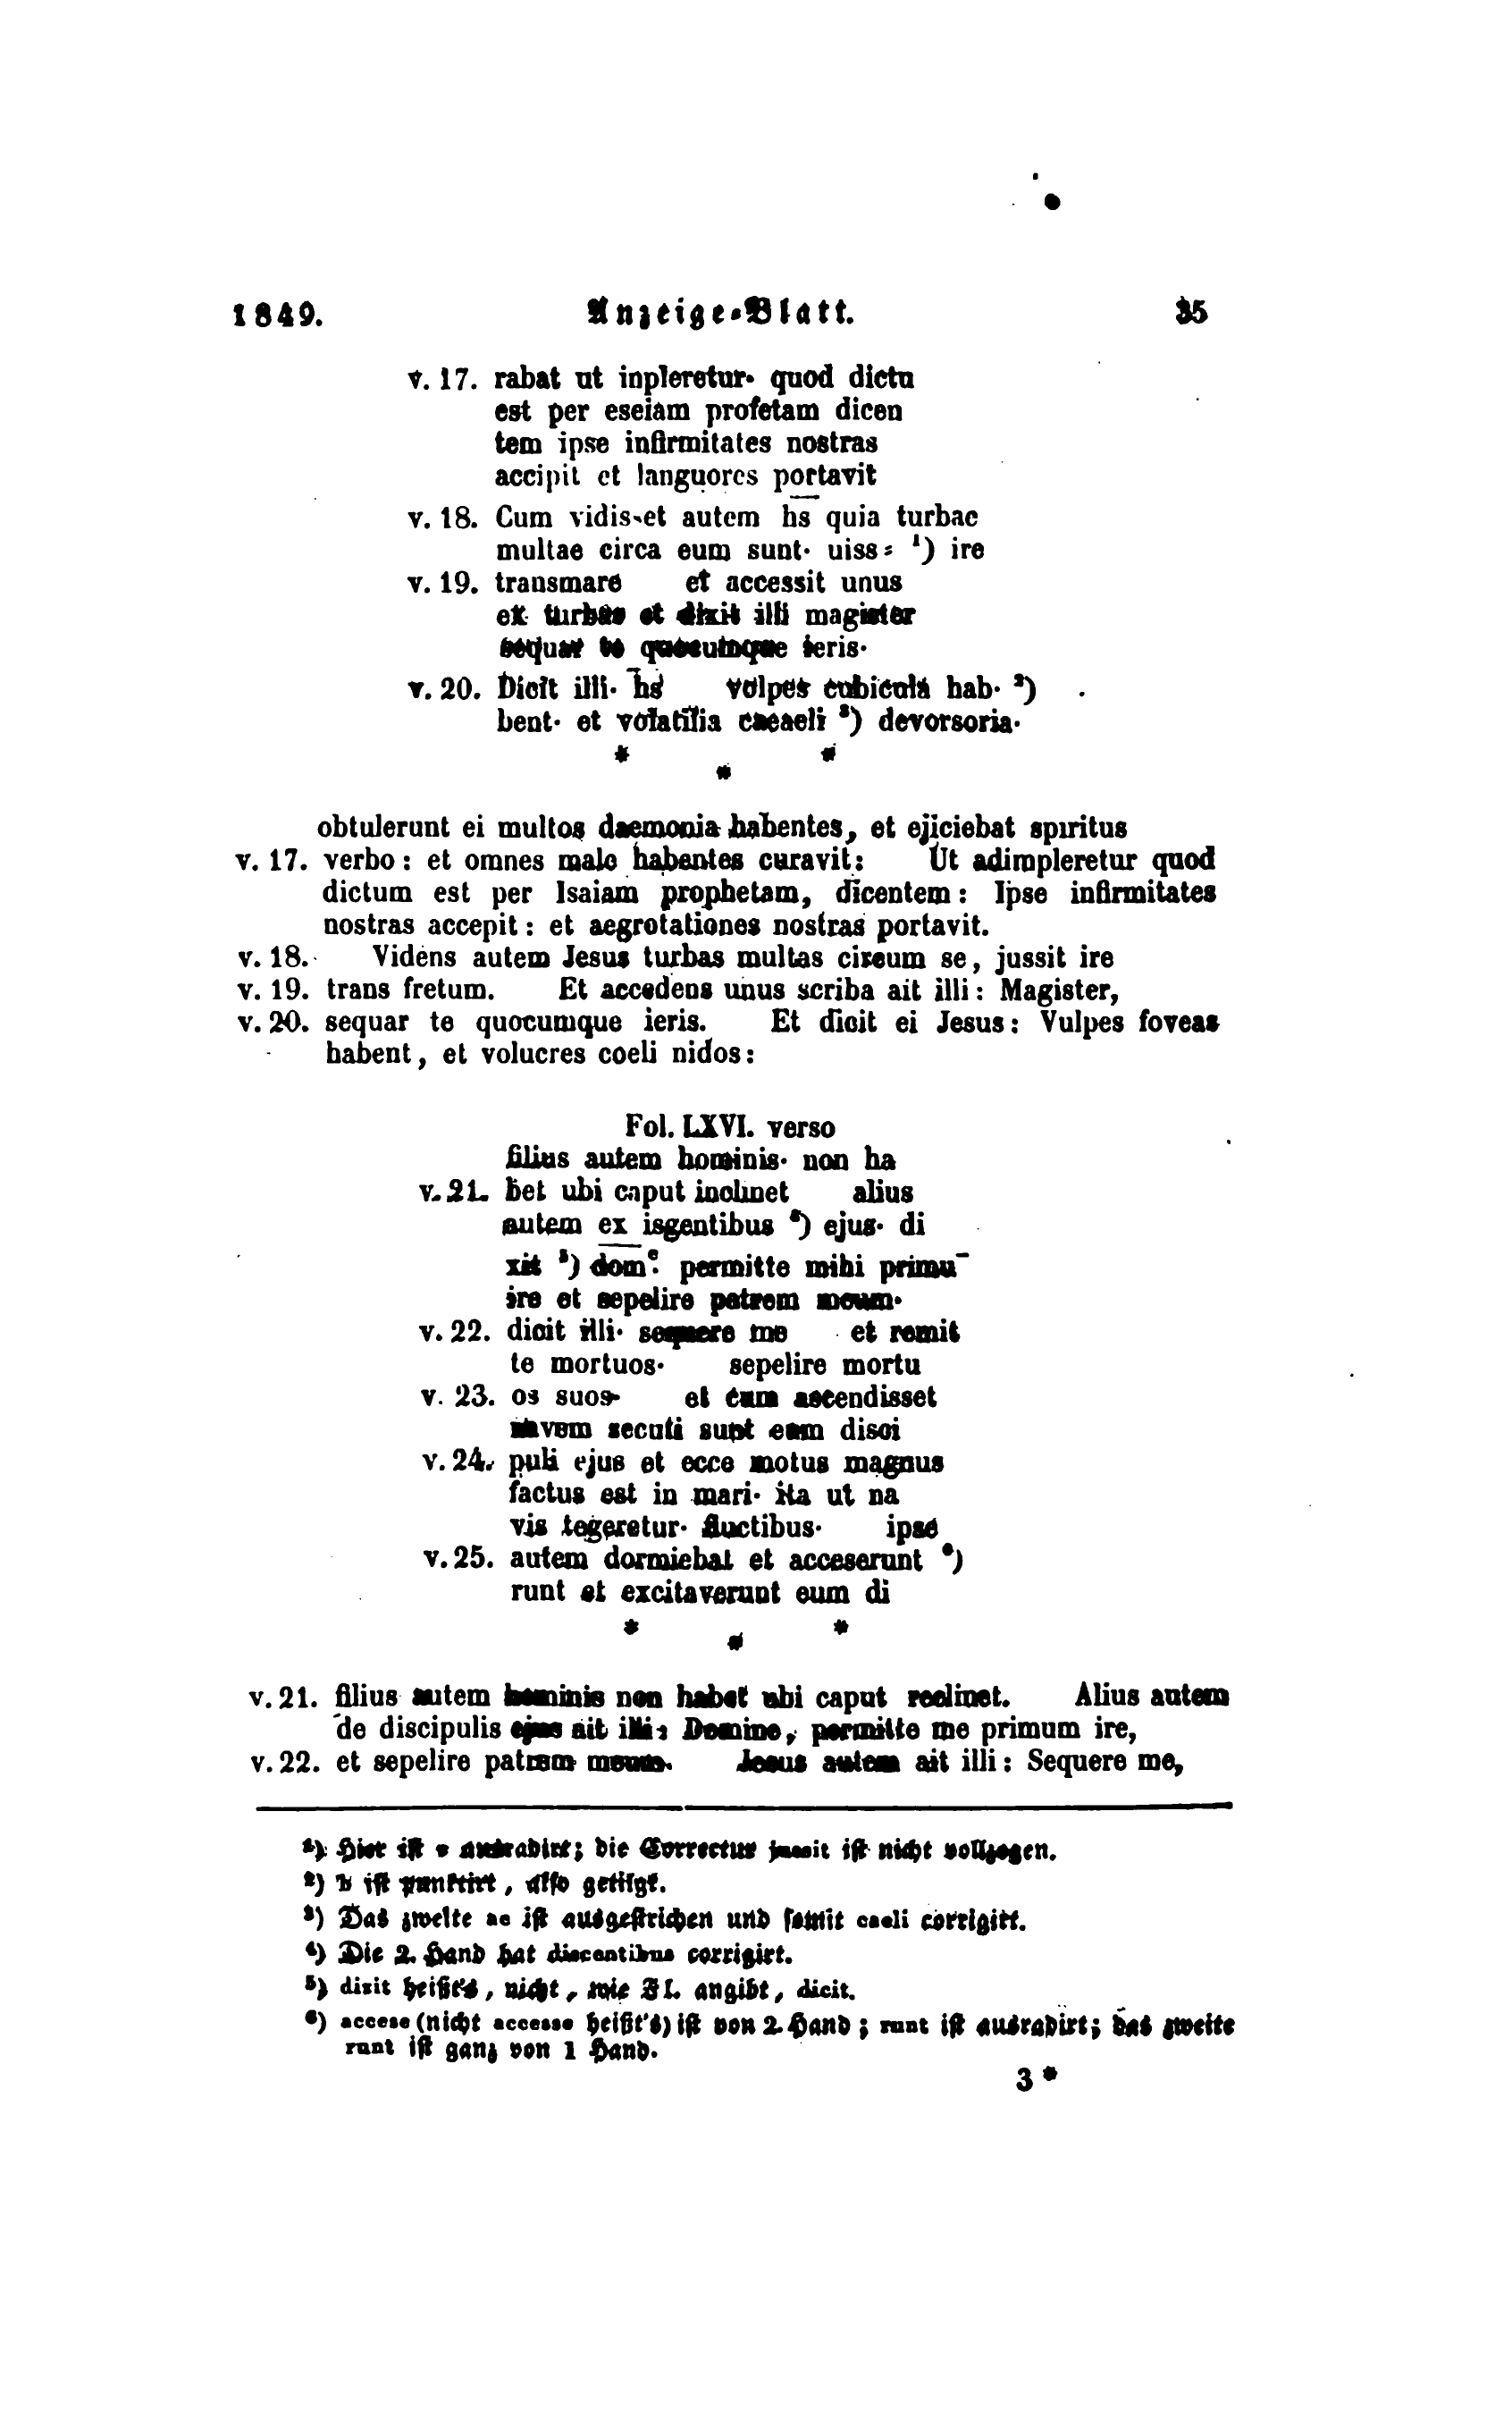 1849. Anzeige-Blatt. 35
v. 17. rabat ut inpleretur· quod dictu
est per eseiam profetam dicen
tem ipse infirmitates nostras
accipit et languores portavit
v. 18. Cum vidisset autem hs̅ quia turbae
multae circa eum sunt· uiss= ¹) ire
v. 19. transmare et accessit unus
ex turbae et dixit illi magister
sequar te quocumque ieris·
v. 20. Dicit illi· hs̅ volpes cubicula hab· ²)
bent· et volatilia caeaeli ³) devorsoria·
* * *
obtulerunt ei multos daemonia habentes, et ejiciebat spiritus
v. 17. verbo: et omnes male habentes curavit: Ut adimpleretur quod
dictum est per Isaiam prophetam, dicentem: Ipse infirmitates
nostras accepit: et aegrotationes nostras portavit.
v. 18. Videns autem Jesus turbas multas circum se, jussit ire
v. 19. trans fretum. Et accedens unus scriba ait illi: Magister,
v. 20. sequar te quocumque ieris. Et dicit ei Jesus: Vulpes foveas
habent, et volucres coeli nidos:
Fol. LXVI. verso
filius autem hominis· non ha
v. 21. bet ubi caput inclinet alius
autem ex isgentibus ⁴) ejus· di
xit ⁵) dom̅ᵉ· permitte mihi primu¯
ire et sepelire patrem meum·
v. 22. dicit illi· sequere me et remit
te mortuos· sepelire mortu
v. 23. os suos· et cum ascendisset
navem secuti sunt eum disci
v. 24. puli ejus et ecce motus magnus
factus est in mari· ita ut na
vis tegeretur· fluctibus· ipse
v. 25. autem dormiebat et acceserunt ⁶)
runt et excitaverunt eum di
* * *
v. 21. filius autem hominis non habet ubi caput reclinet. Alius autem
de discipulis ejus ait illi: Domine, permitte me primum ire,
v. 22. et sepelire patrem meum. Jesus autem ait illi: Sequere me,
¹) Hier ist v ausradirt; die Correctur jussit ist nicht vollzogen.
²) b ist punktirt, also getilgt.
³) Das zweite ae ist ausgestrichen und somit caeli corrigirt.
⁴) Die 2. Hand hat discentibus corrigirt.
⁵) dixit heißt's, nicht, wie Fl. angibt, dicit.
⁶) accese (nicht accesse heißt's) ist von 2. Hand; runt ist ausradirt; das zweite
runt ist ganz von 1 Hand.
3 *